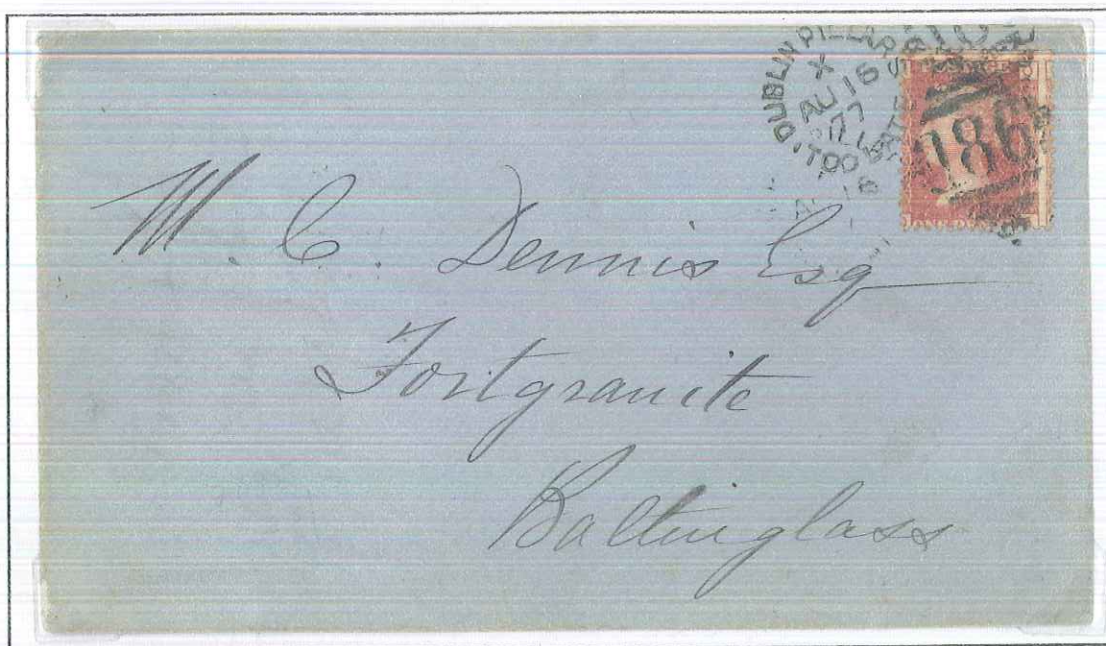 DUBLIN PILLARS
X
AU 16
77
TOO LATE
186
ONE PENNY
M. C. Dennis Esq
Fortgranite
Baltinglass